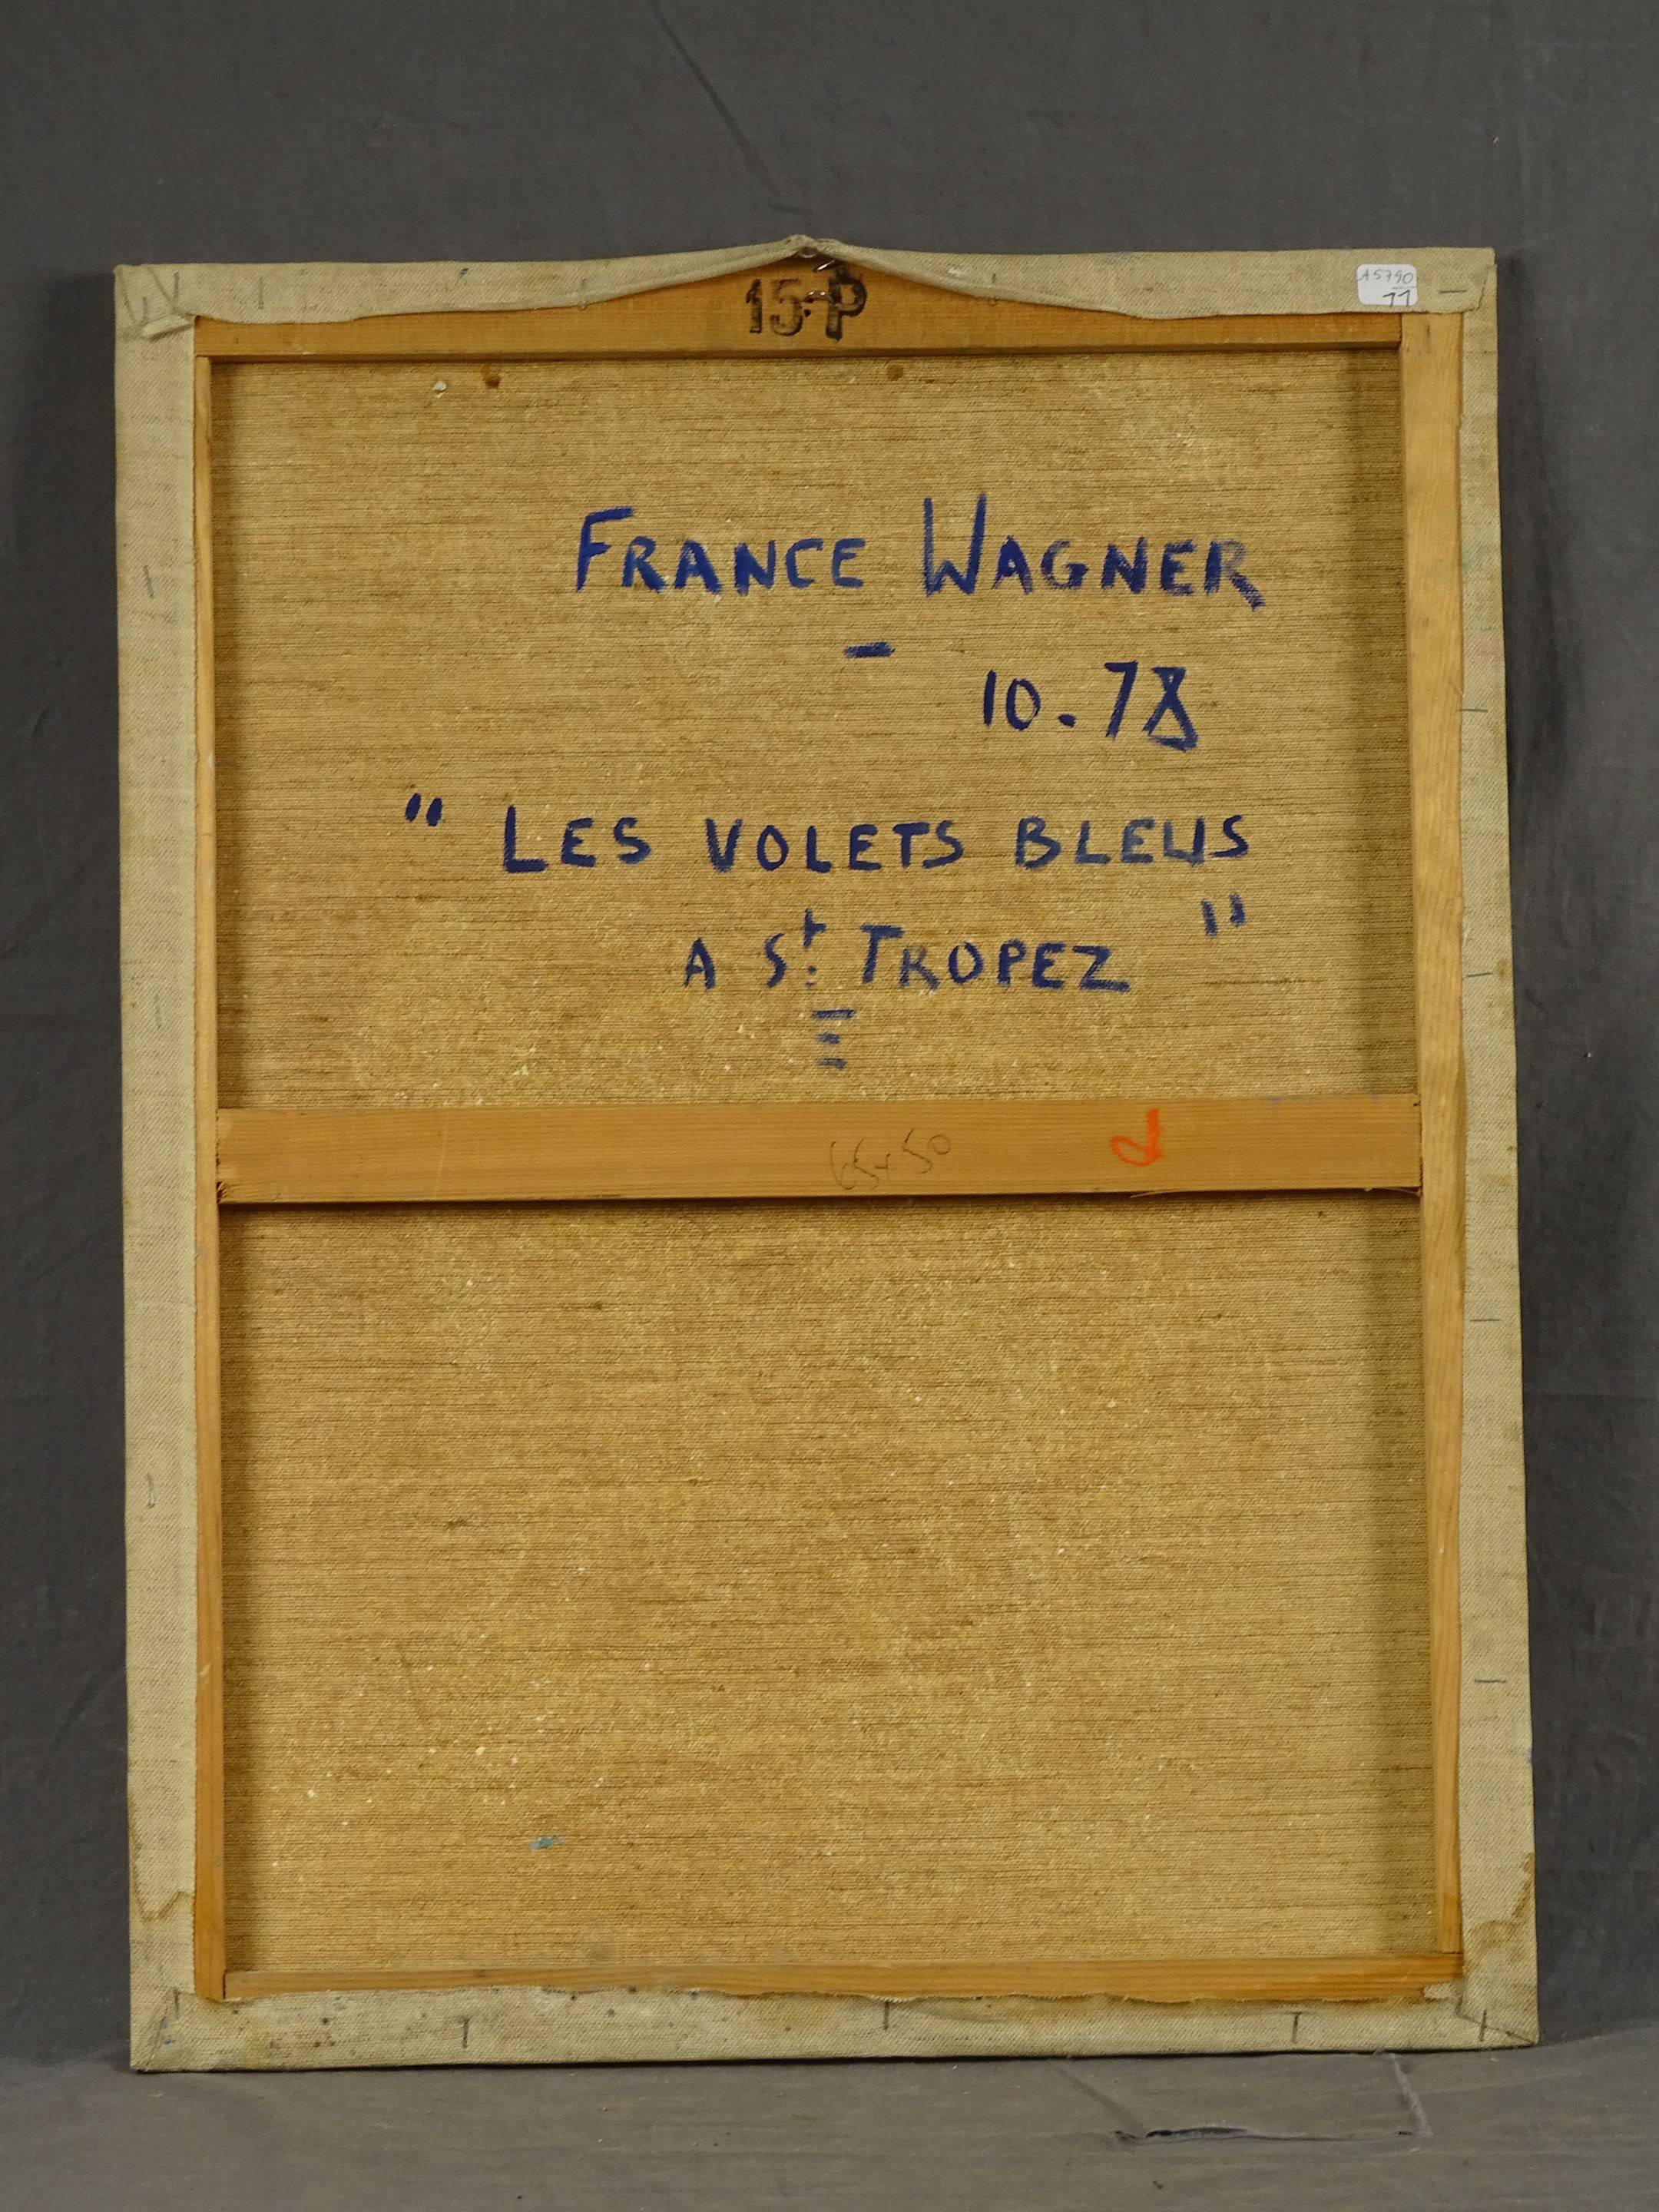 15-P
A5790
11
FRANCE WAGNER
-
10.78
" LES VOLETS BLEUS
A St TROPEZ "
65x50